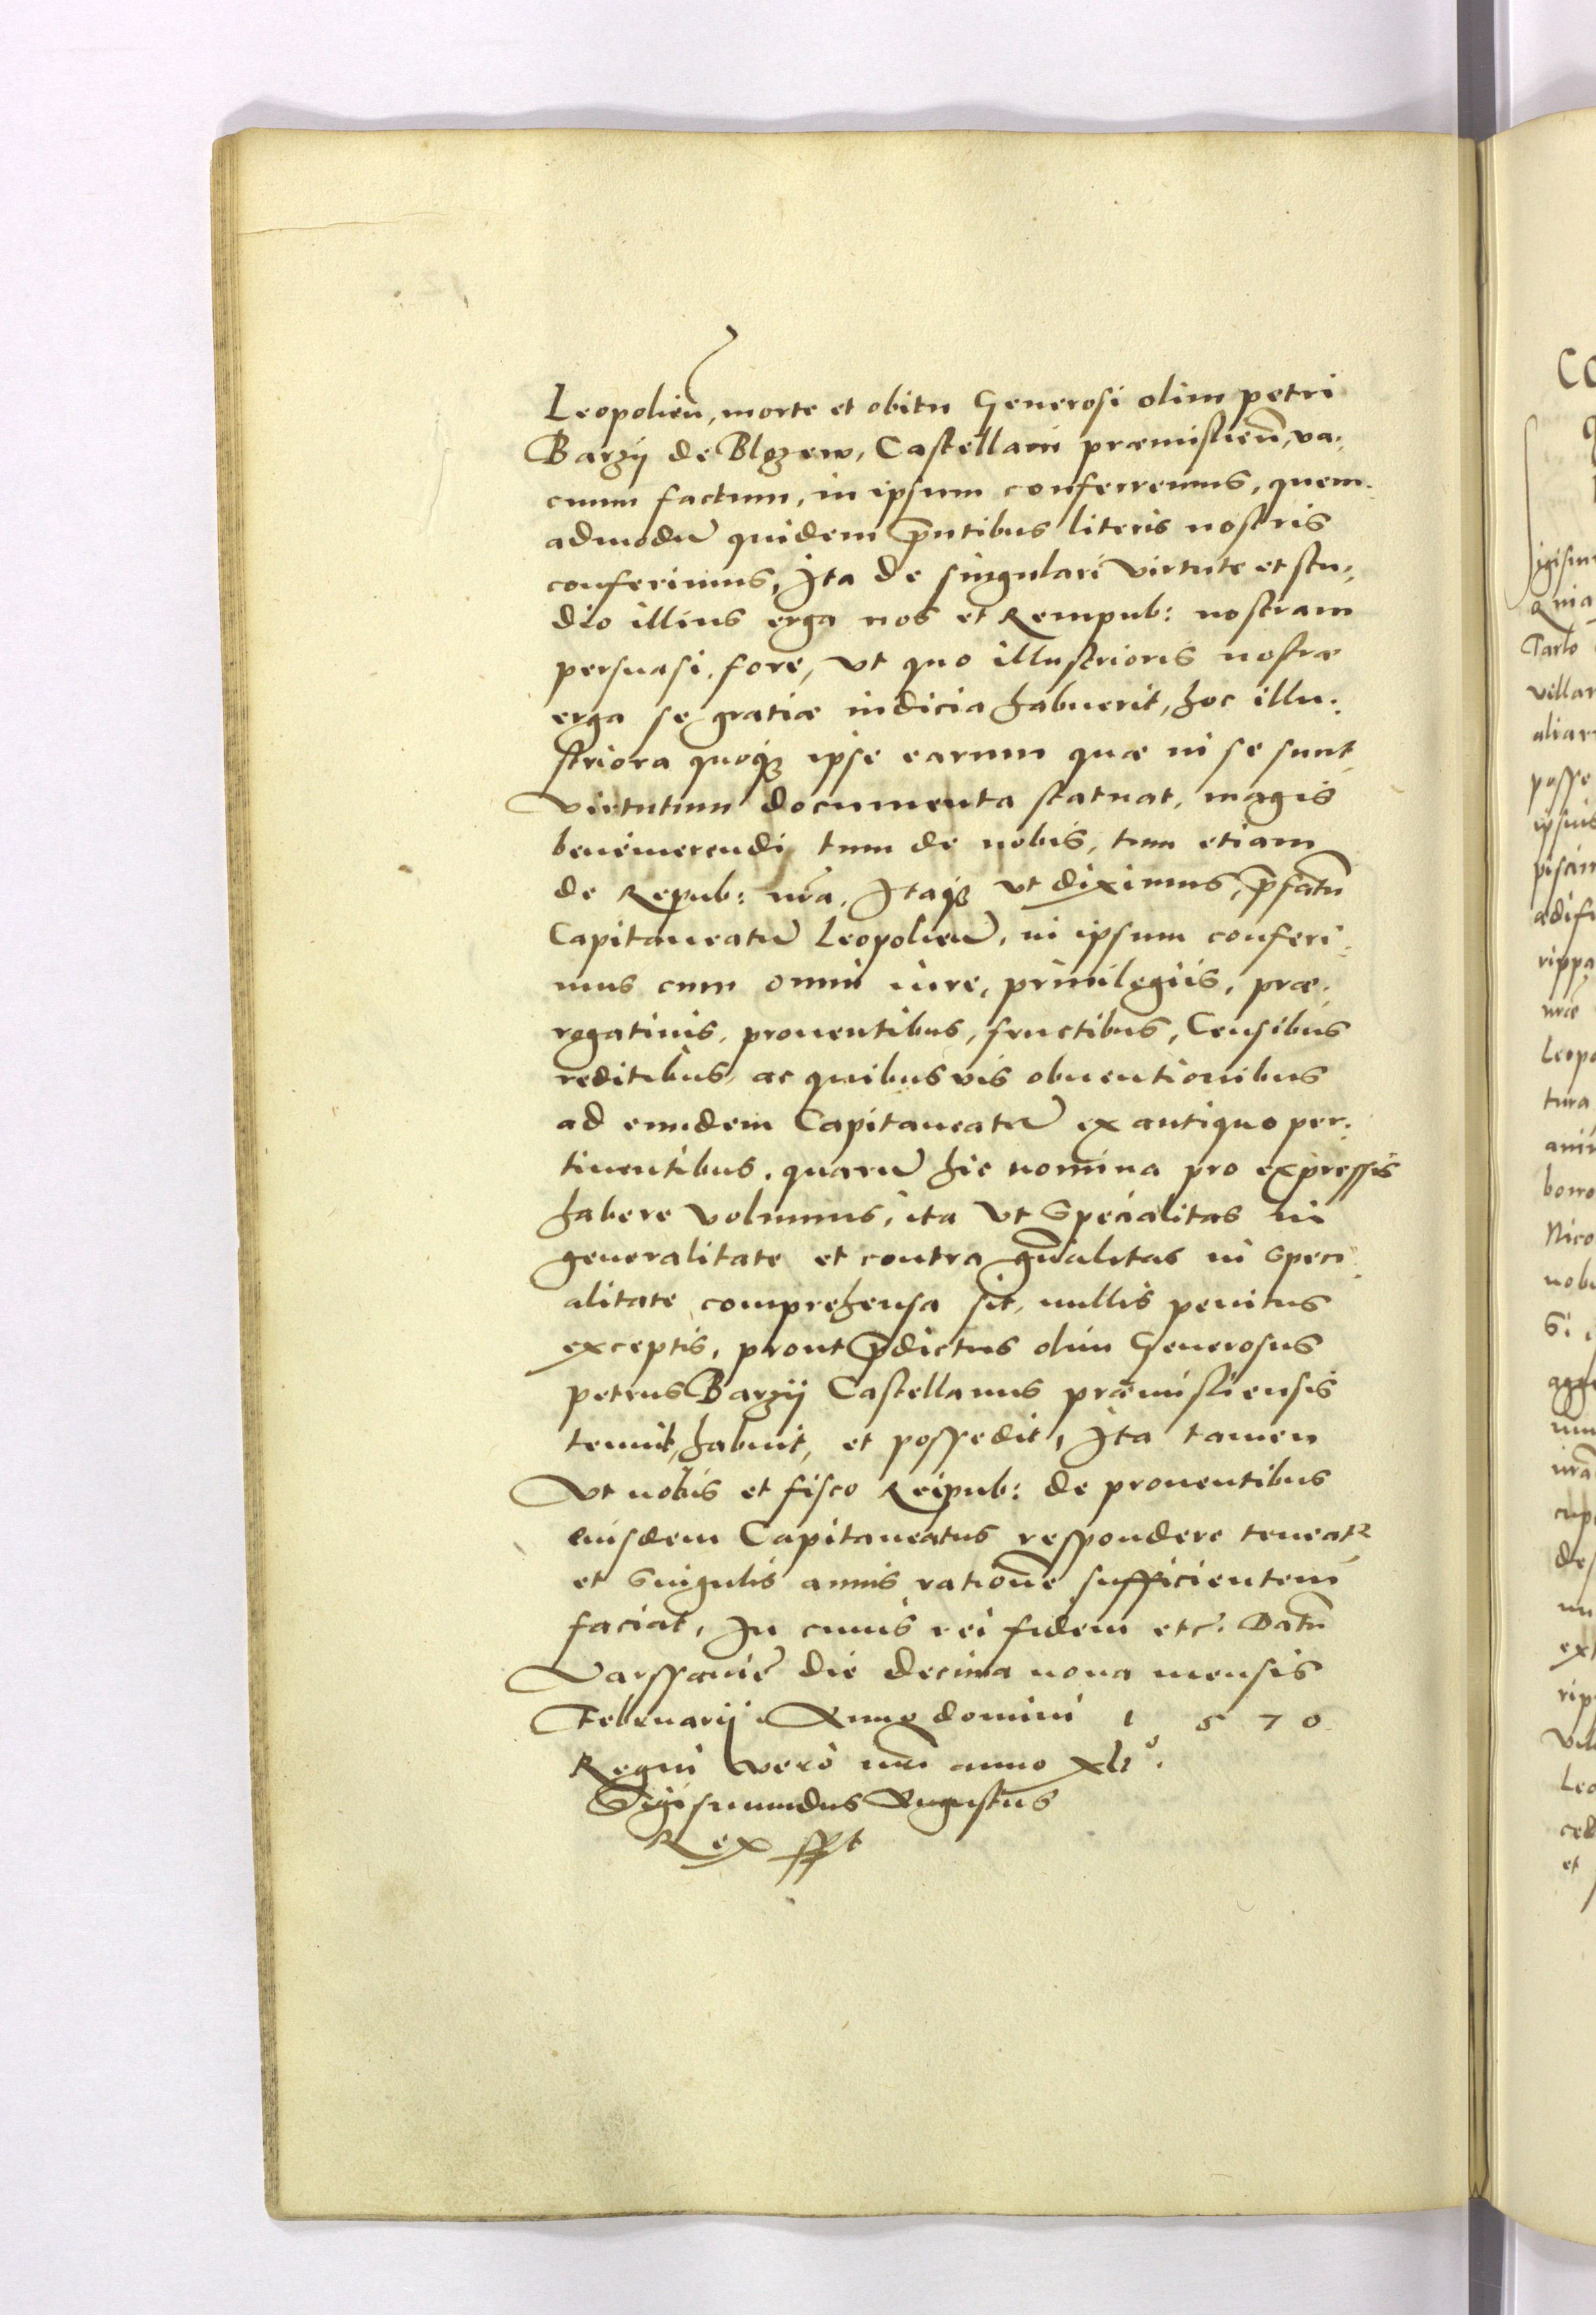 Leopolień, morte et obitu Generosi olim petri
Barzÿ de Blozew, Castellani præmislień, va-
cuum factum, in ipsum conferremus, quem-
admodū quidem p̄ntibus literis nostris
conferimus, Ita de singulari virtute et stu-
dio illius erga nos et Rempub: nostram
persuasi, fore, vt quo illustrioris nostræ
erga se gratiæ indicia habuerit, hoc illu-
striora quoqȝ ipse earum quæ in se sunt
virtutum documenta statuat, magis
benemerendi tum de nobis, tum etiam
de Repub: nr̄a. Itaqȝ vt diximus, p̄fatū
Capitaneatū Leopolień, in ipsum conferi-
mus cum omni iure, priuilegiis, præ-
rogatiuis, prouentibus, fructibus, Censibus
reditibus, ac quibusvis obuentionibus
ad eundem Capitaneatū ex antiquo per-
tinentibus, quarū hic nomina pro expressis
habere volumus, ita vt Specialitas in
generalitate et contra gn̄alitas in speci-
alitate comprehensa sit, nullis penitus
exceptis, prout p̄dictus olim Generosus
petrus Barzÿ Castellanus præmisliensis
tenuit, habuit, et possedit, Ita tamen
Vt nobis et fisco Reipub: de prouentibus
eiusdem Capitaneatus respondere teneatr
et Singulis annis rationē sufficientem
faciat, In cuius rei fidem etc. Datū
Varssauie die decima nona mensis
Februarÿ Anno domini 1570
Regni vero nr̄i anno xli°.
Sigismundus Augustus
Rex sspt
CO
igism
Quia
Tarlo
villar
aliar
posse
ipsius
piscin
ædifi
rippa
nræ
Leopo
tura
borro
Nico
nobi
S.
nrā
cup
des
ext
rip
vil
Leo
ced
et